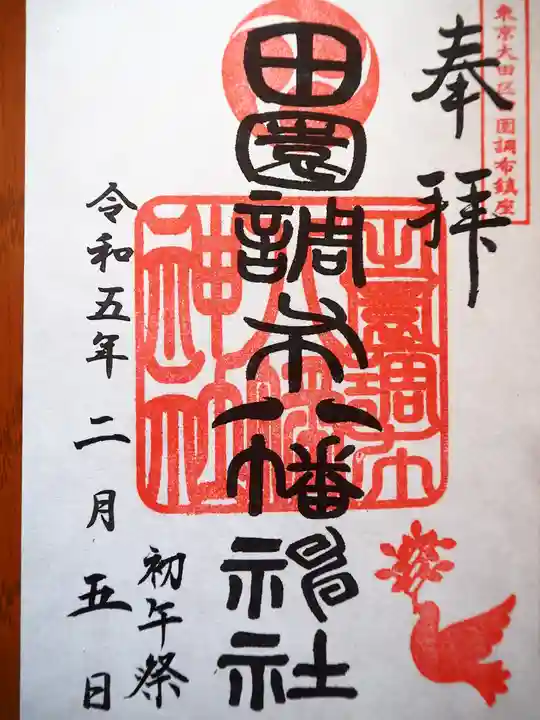 東京大田区田園調布鎮座
奉拝
田園調布八幡神社
田園調布八幡神社
初午祭
令和五年二月五日